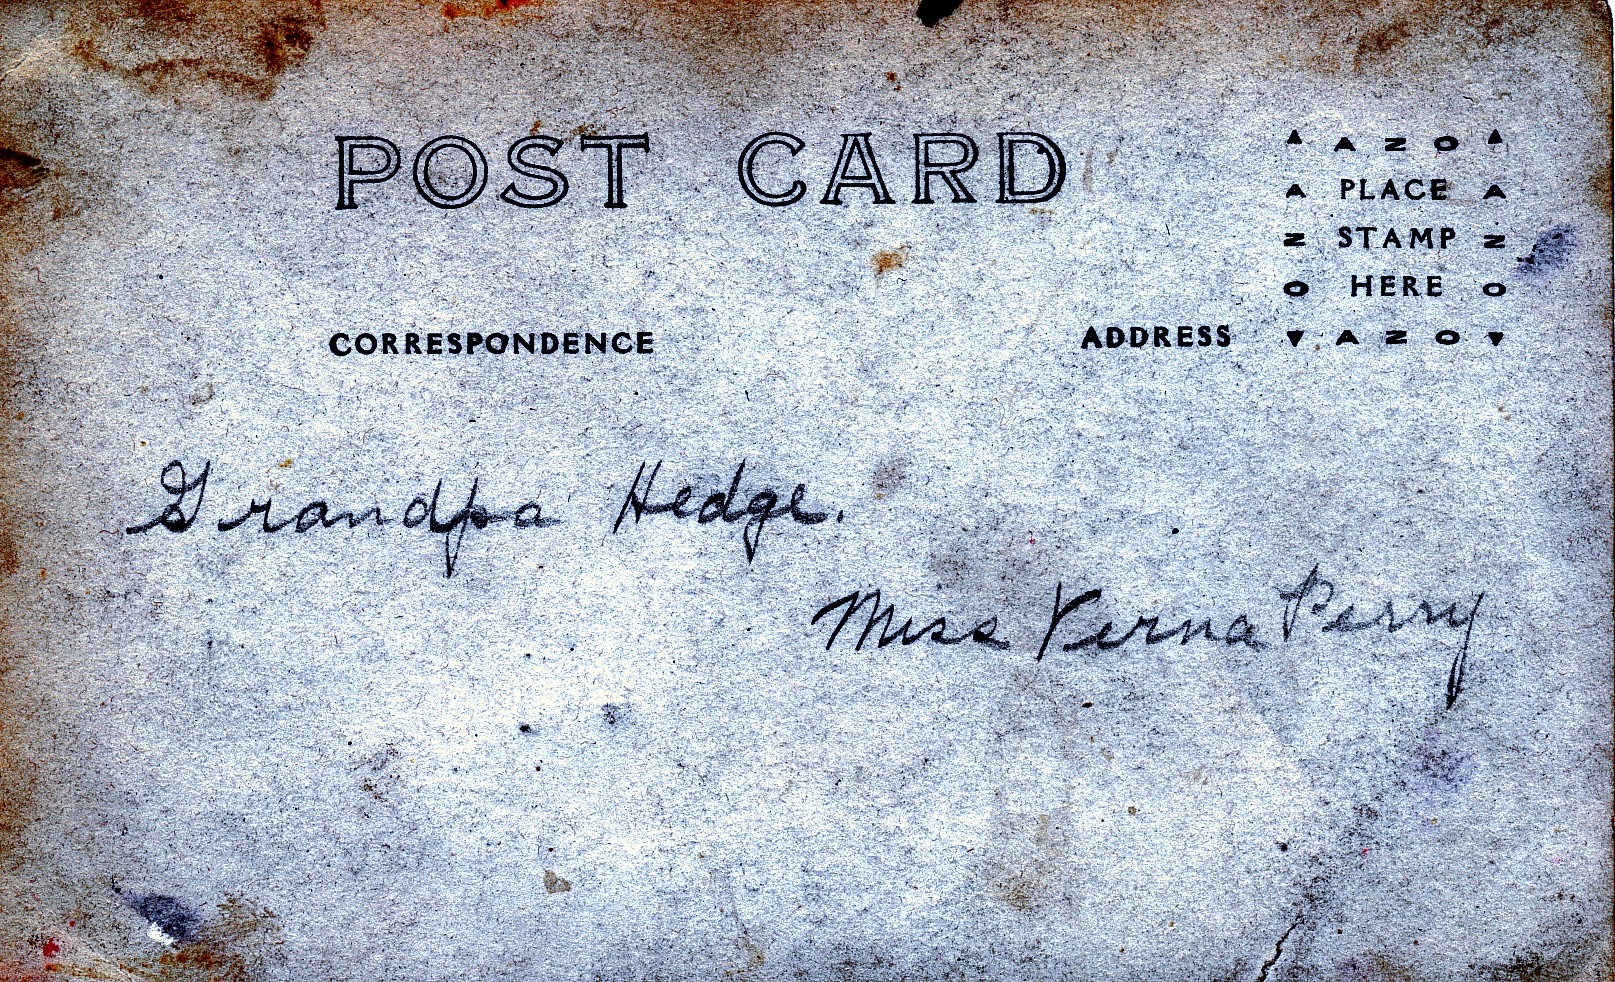 POST CARD
▲ A Z O ▲
A PLACE A
Z STAMP Z
O HERE O
▼ A Z O ▼
CORRESPONDENCE
ADDRESS
Grandpa Hedge.
Miss Verna Perry